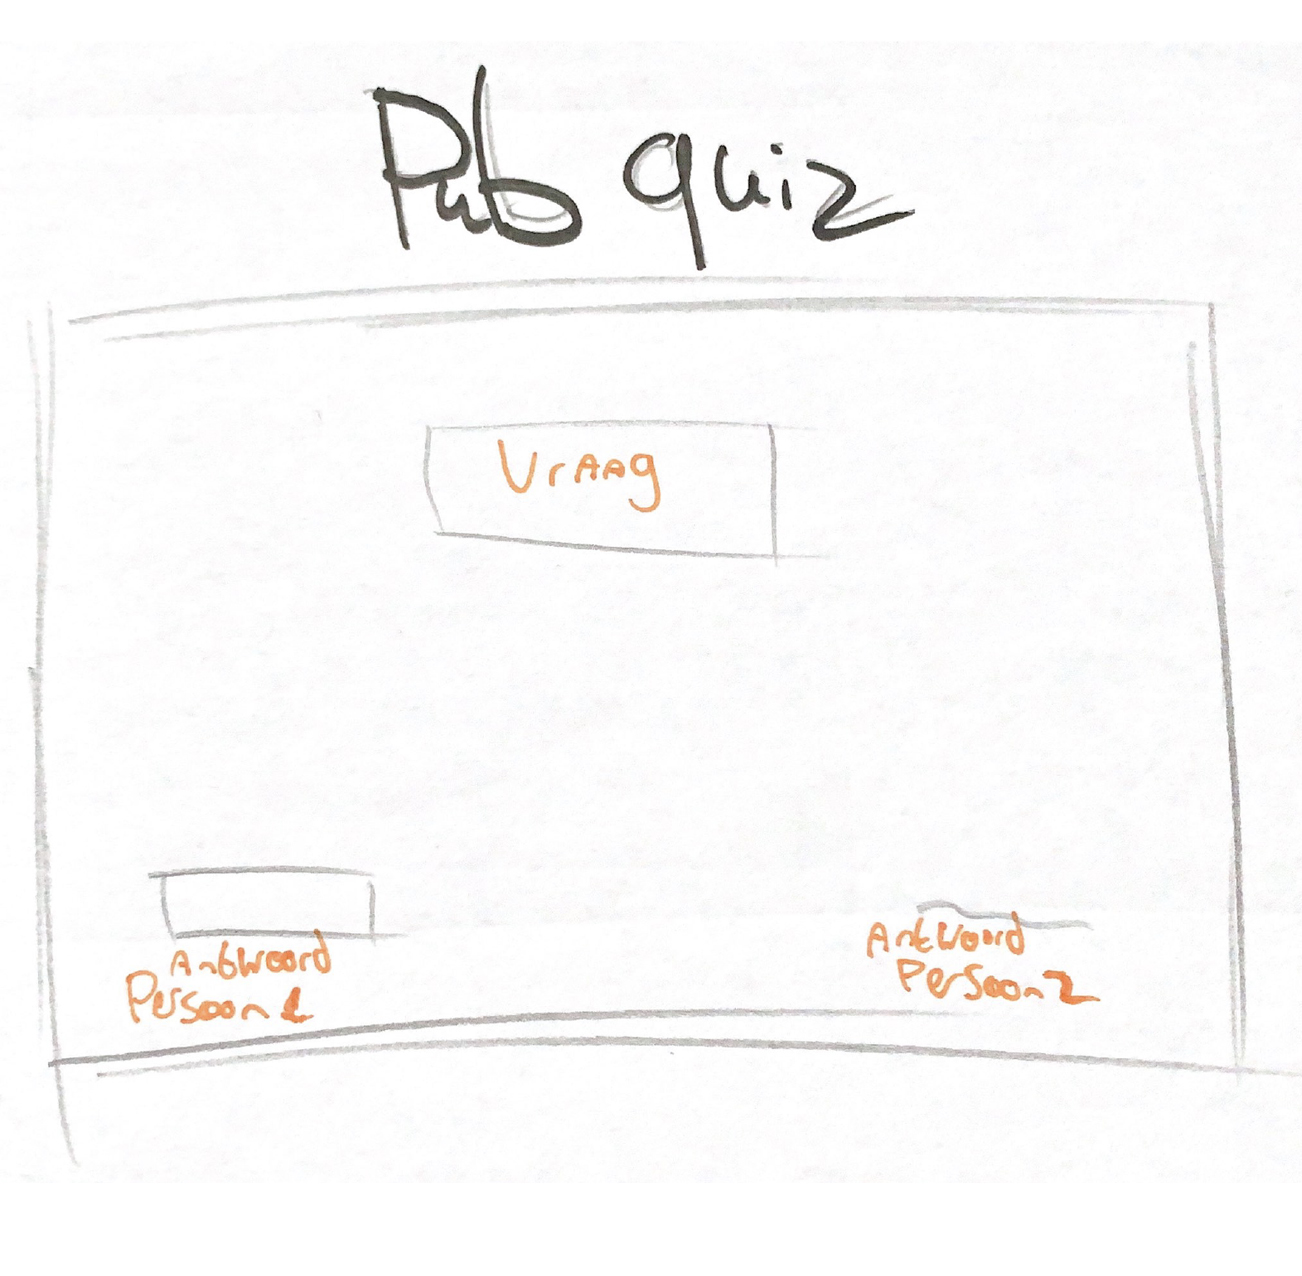 Pub quiz
Vraag
Antwoord
Persoon 1
Antwoord
Persoon 2